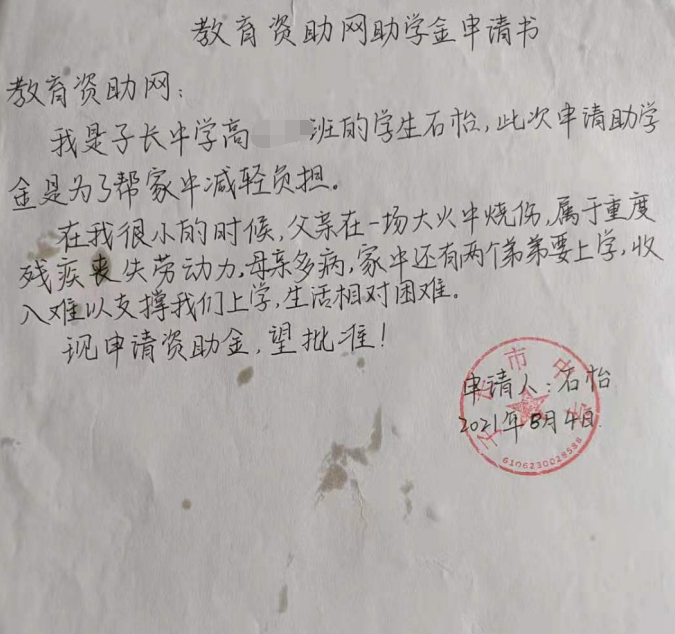 教育资助网助学金申请书
教育资助网：
我是子长中学高 班的学生石怡，此次申请助学
金是为了帮家中减轻负担。
在我很小的时候，父亲在一场大火中烧伤，属于重度
残疾丧失劳动力，母亲多病，家中还有两个弟弟要上学，收
入难以支撑我们上学，生活相对困难。
现申请资助金，望批准！
申请人：石怡
2021年8月4日
子长市中学
6106230028588